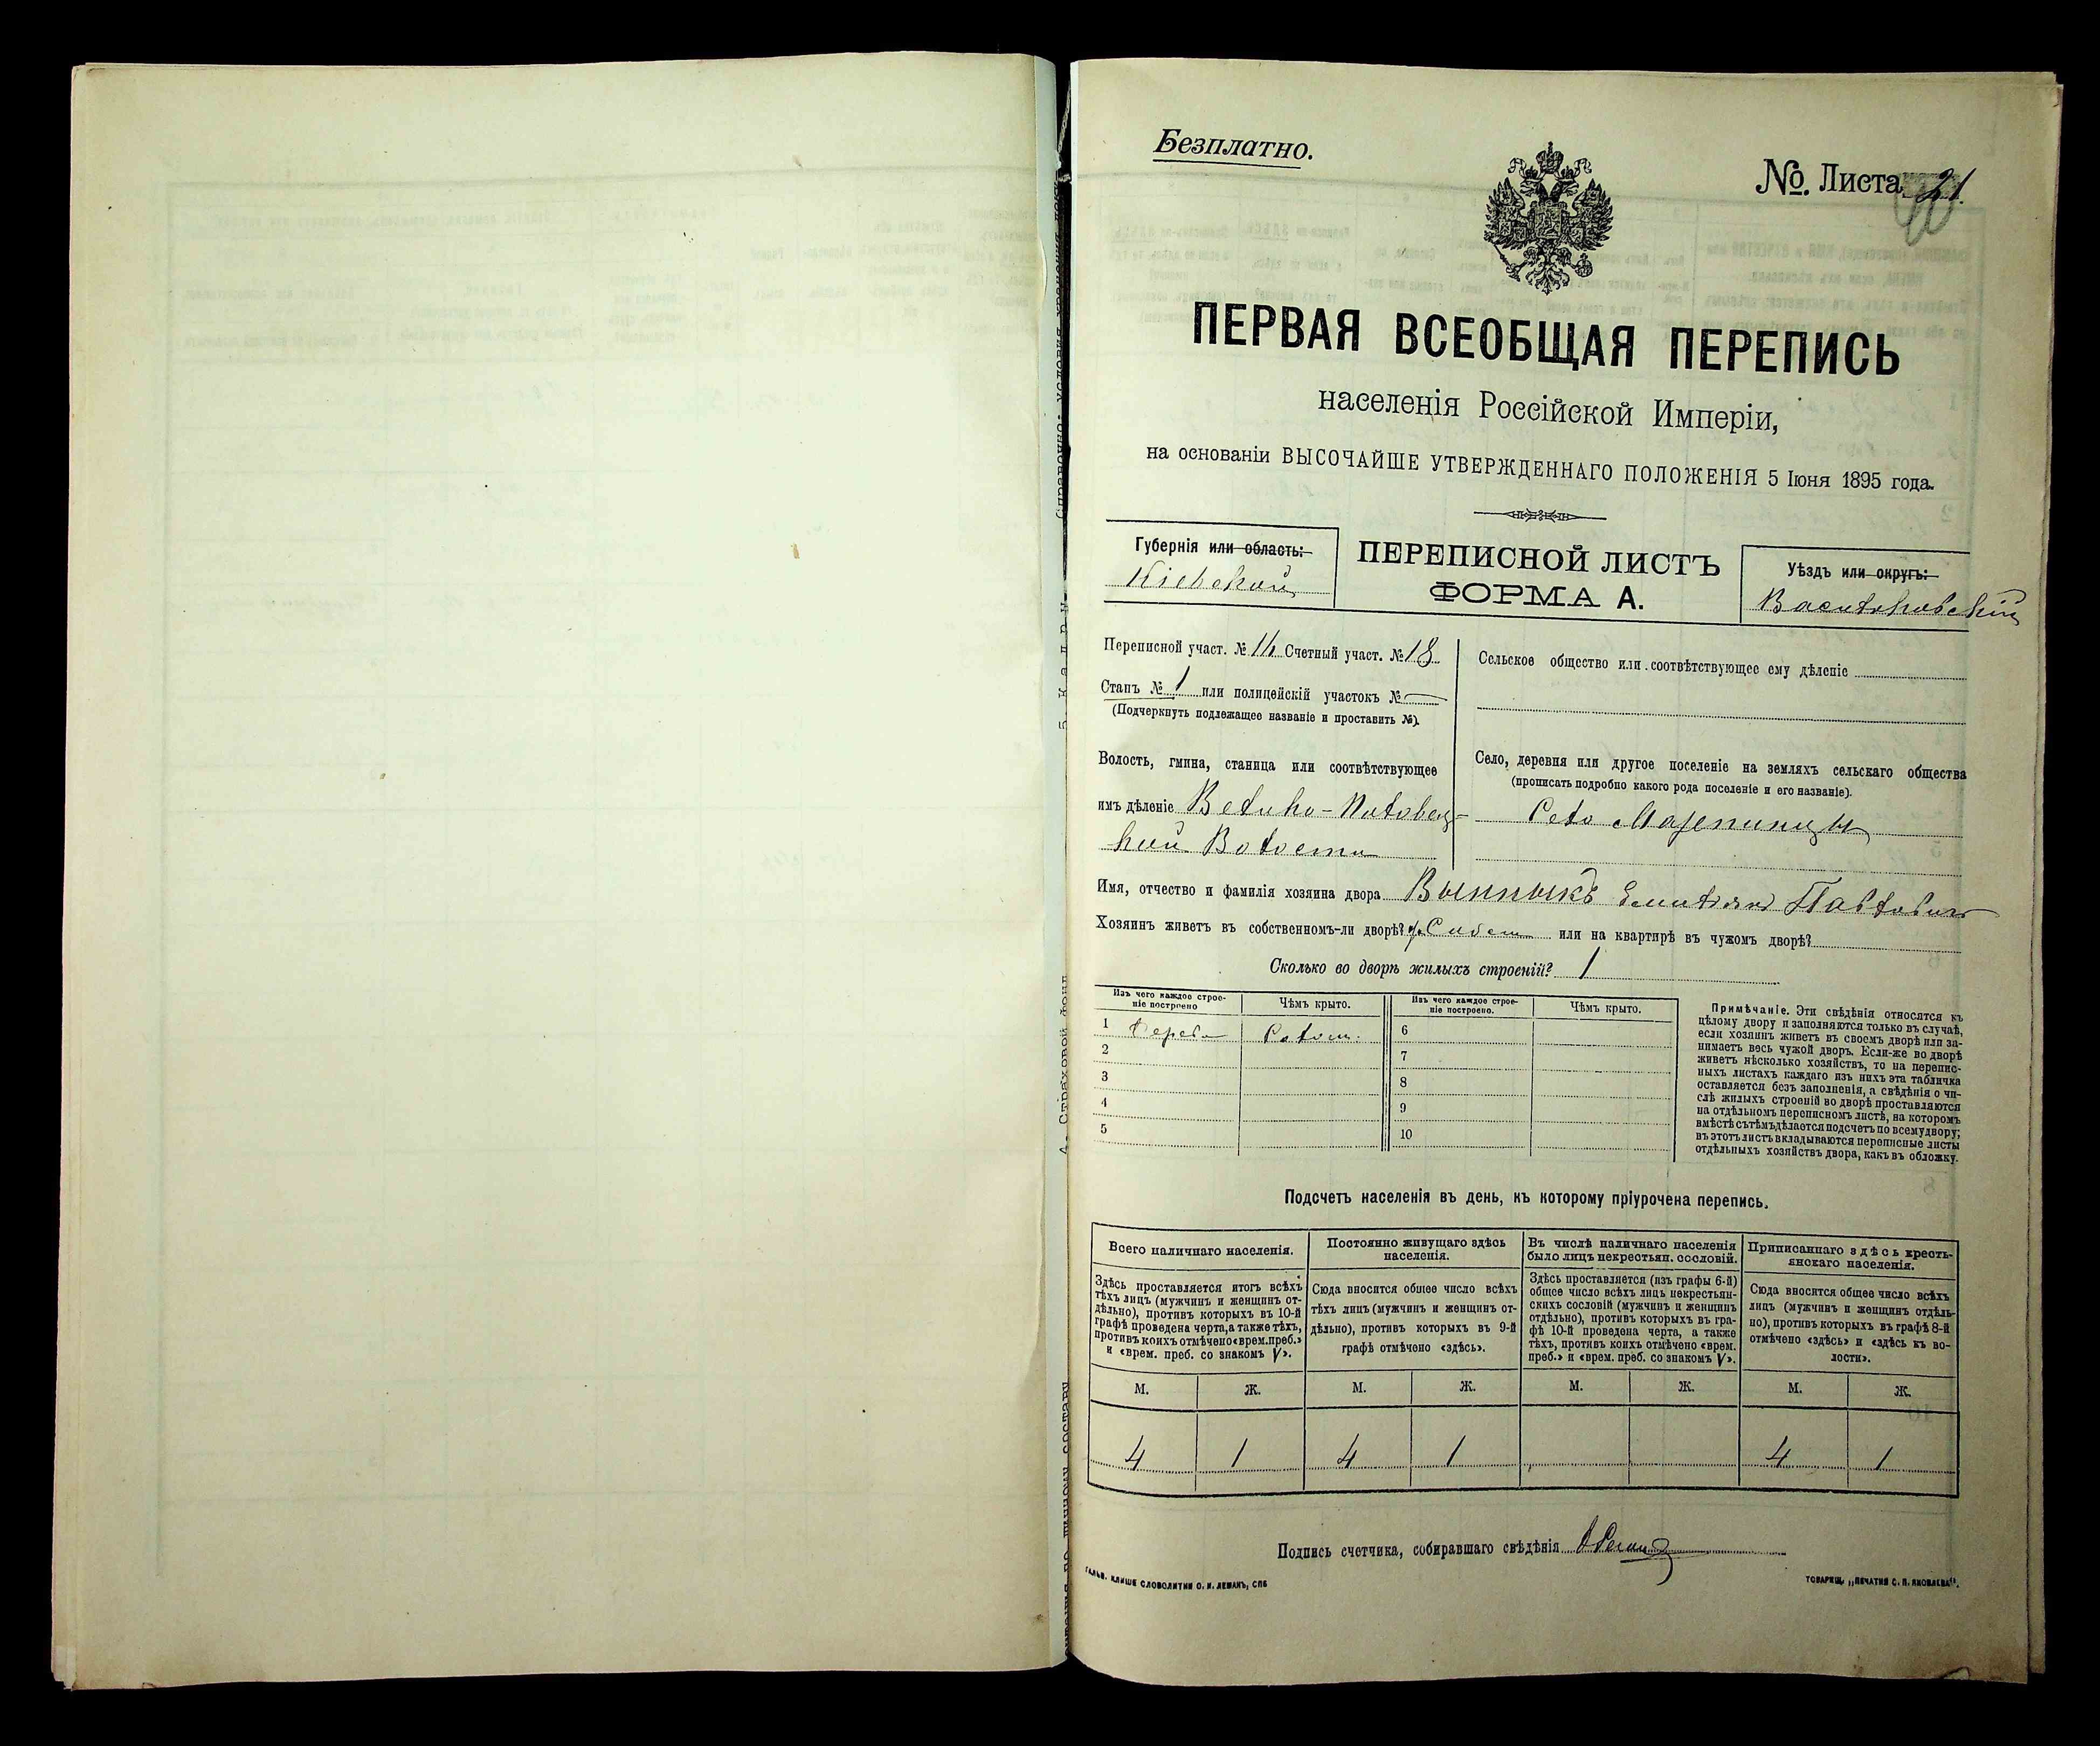 Безплатно.
№. Листа 21.
ПЕРВАЯ ВСЕОБЩАЯ ПЕРЕПИСЬ
населенія Россійской Имперіи,
на основаніи ВЫСОЧАЙШЕ УТВЕРЖДЕННАГО ПОЛОЖЕНІЯ 5 Іюня 1895 года.
Губернія или область:
Кіевской
ПЕРЕПИСНОЙ ЛИСТЪ
ФОРМА А.
Уѣздъ или округъ:
Васильковскій
Переписной участ. № Счетный участ. № 18
Станъ № 1 или полицейскій участокъ №
(Подчеркнуть подлежащее названіе и проставить №).
Сельское общество или соотвѣтствующее ему дѣленіе
Волость, гмина, станица или соотвѣтствующее
имъ дѣленіе Велико-Половец-
кой Волости
Село, деревня или другое поселеніе на земляхъ сельскаго общества
(прописать подробно какого рода поселеніе и его названіе).
Село Мазепинцы
Имя, отчество и фамилія хозяина двора Емиліянъ Павловичъ
Хозяинъ живетъ въ собственномъ-ли дворѣ? или на квартирѣ въ чужомъ дворѣ?
Сколько во дворѣ жилыхъ строеній? 1
Изъ чего каждое строе-
ніе построено
Чѣмъ крыто.
Изъ чего каждое строе-
ніе построено.
Чѣмъ крыто.
1 Дерева Солом.
2
3
4
5
6
7
8
9
10
Примѣчаніе. Эти свѣдѣнія относятся къ
цѣлому двору и заполняются только въ случаѣ,
если хозяинъ живетъ въ своемъ дворѣ или за-
нимаетъ весь чужой дворъ. Если-же во дворѣ
живетъ нѣсколько хозяйствъ, то на перепис-
ныхъ листахъ каждаго изъ нихъ эта табличка
оставляется безъ заполненія, а свѣдѣнія о чи-
слѣ жилыхъ строеній во дворѣ проставляются
на отдѣльномъ переписномъ листѣ, на которомъ
вмѣстѣ съ тѣмъ дѣлается подсчетъ по всему двору;
въ этотъ листъ вкладываются переписные листы
отдѣльныхъ хозяйствъ двора, какъ въ обложку.
Подсчетъ населенія въ день, къ которому пріурочена перепись.
Всего наличнаго населенія.
Постоянно живущаго здѣсь
населенія.
Въ числѣ наличнаго населенія
было лицъ некрестьян. сословій.
Приписаннаго здѣсь кресть-
янскаго населенія.
Здѣсь проставляется итогъ всѣхъ
тѣхъ лицъ (мужчинъ и женщинъ от-
дѣльно), противъ которыхъ въ 10-й
графѣ проведена черта, а также тѣхъ,
противъ коихъ отмѣчено «врем. преб.»
и «врем. преб. со знакомъ V».
Сюда вносится общее число всѣхъ
тѣхъ лицъ (мужчинъ и женщинъ от-
дѣльно), противъ которыхъ въ 9-й
графѣ отмѣчено «здѣсь».
Здѣсь проставляется (изъ графы 6-й)
общее число всѣхъ лицъ некрестьян-
скихъ сословій (мужчинъ и женщинъ
отдѣльно), противъ которыхъ въ гра-
фѣ 10-й проведена черта, а также
тѣхъ, противъ коихъ отмѣчено «врем.
преб.» и «врем. преб. со знакомъ V».
Сюда вносится общее число всѣхъ
лицъ (мужчинъ и женщинъ отдѣль-
но), противъ которыхъ въ графѣ 8-й
отмѣчено «здѣсь» и «здѣсь къ во-
лости».
М. Ж. М. Ж. М. Ж. М. Ж.
4 1 4 1 4 1
Подпись счетчика, собиравшаго свѣдѣнія
ГАЛЬВ. КЛИШЕ СЛОВОЛИТНИ О. И. ЛЕМАНЪ, СПБ
ТОВАРИЩ. „ПЕЧАТНЯ С. П. ЯКОВЛЕВА“.